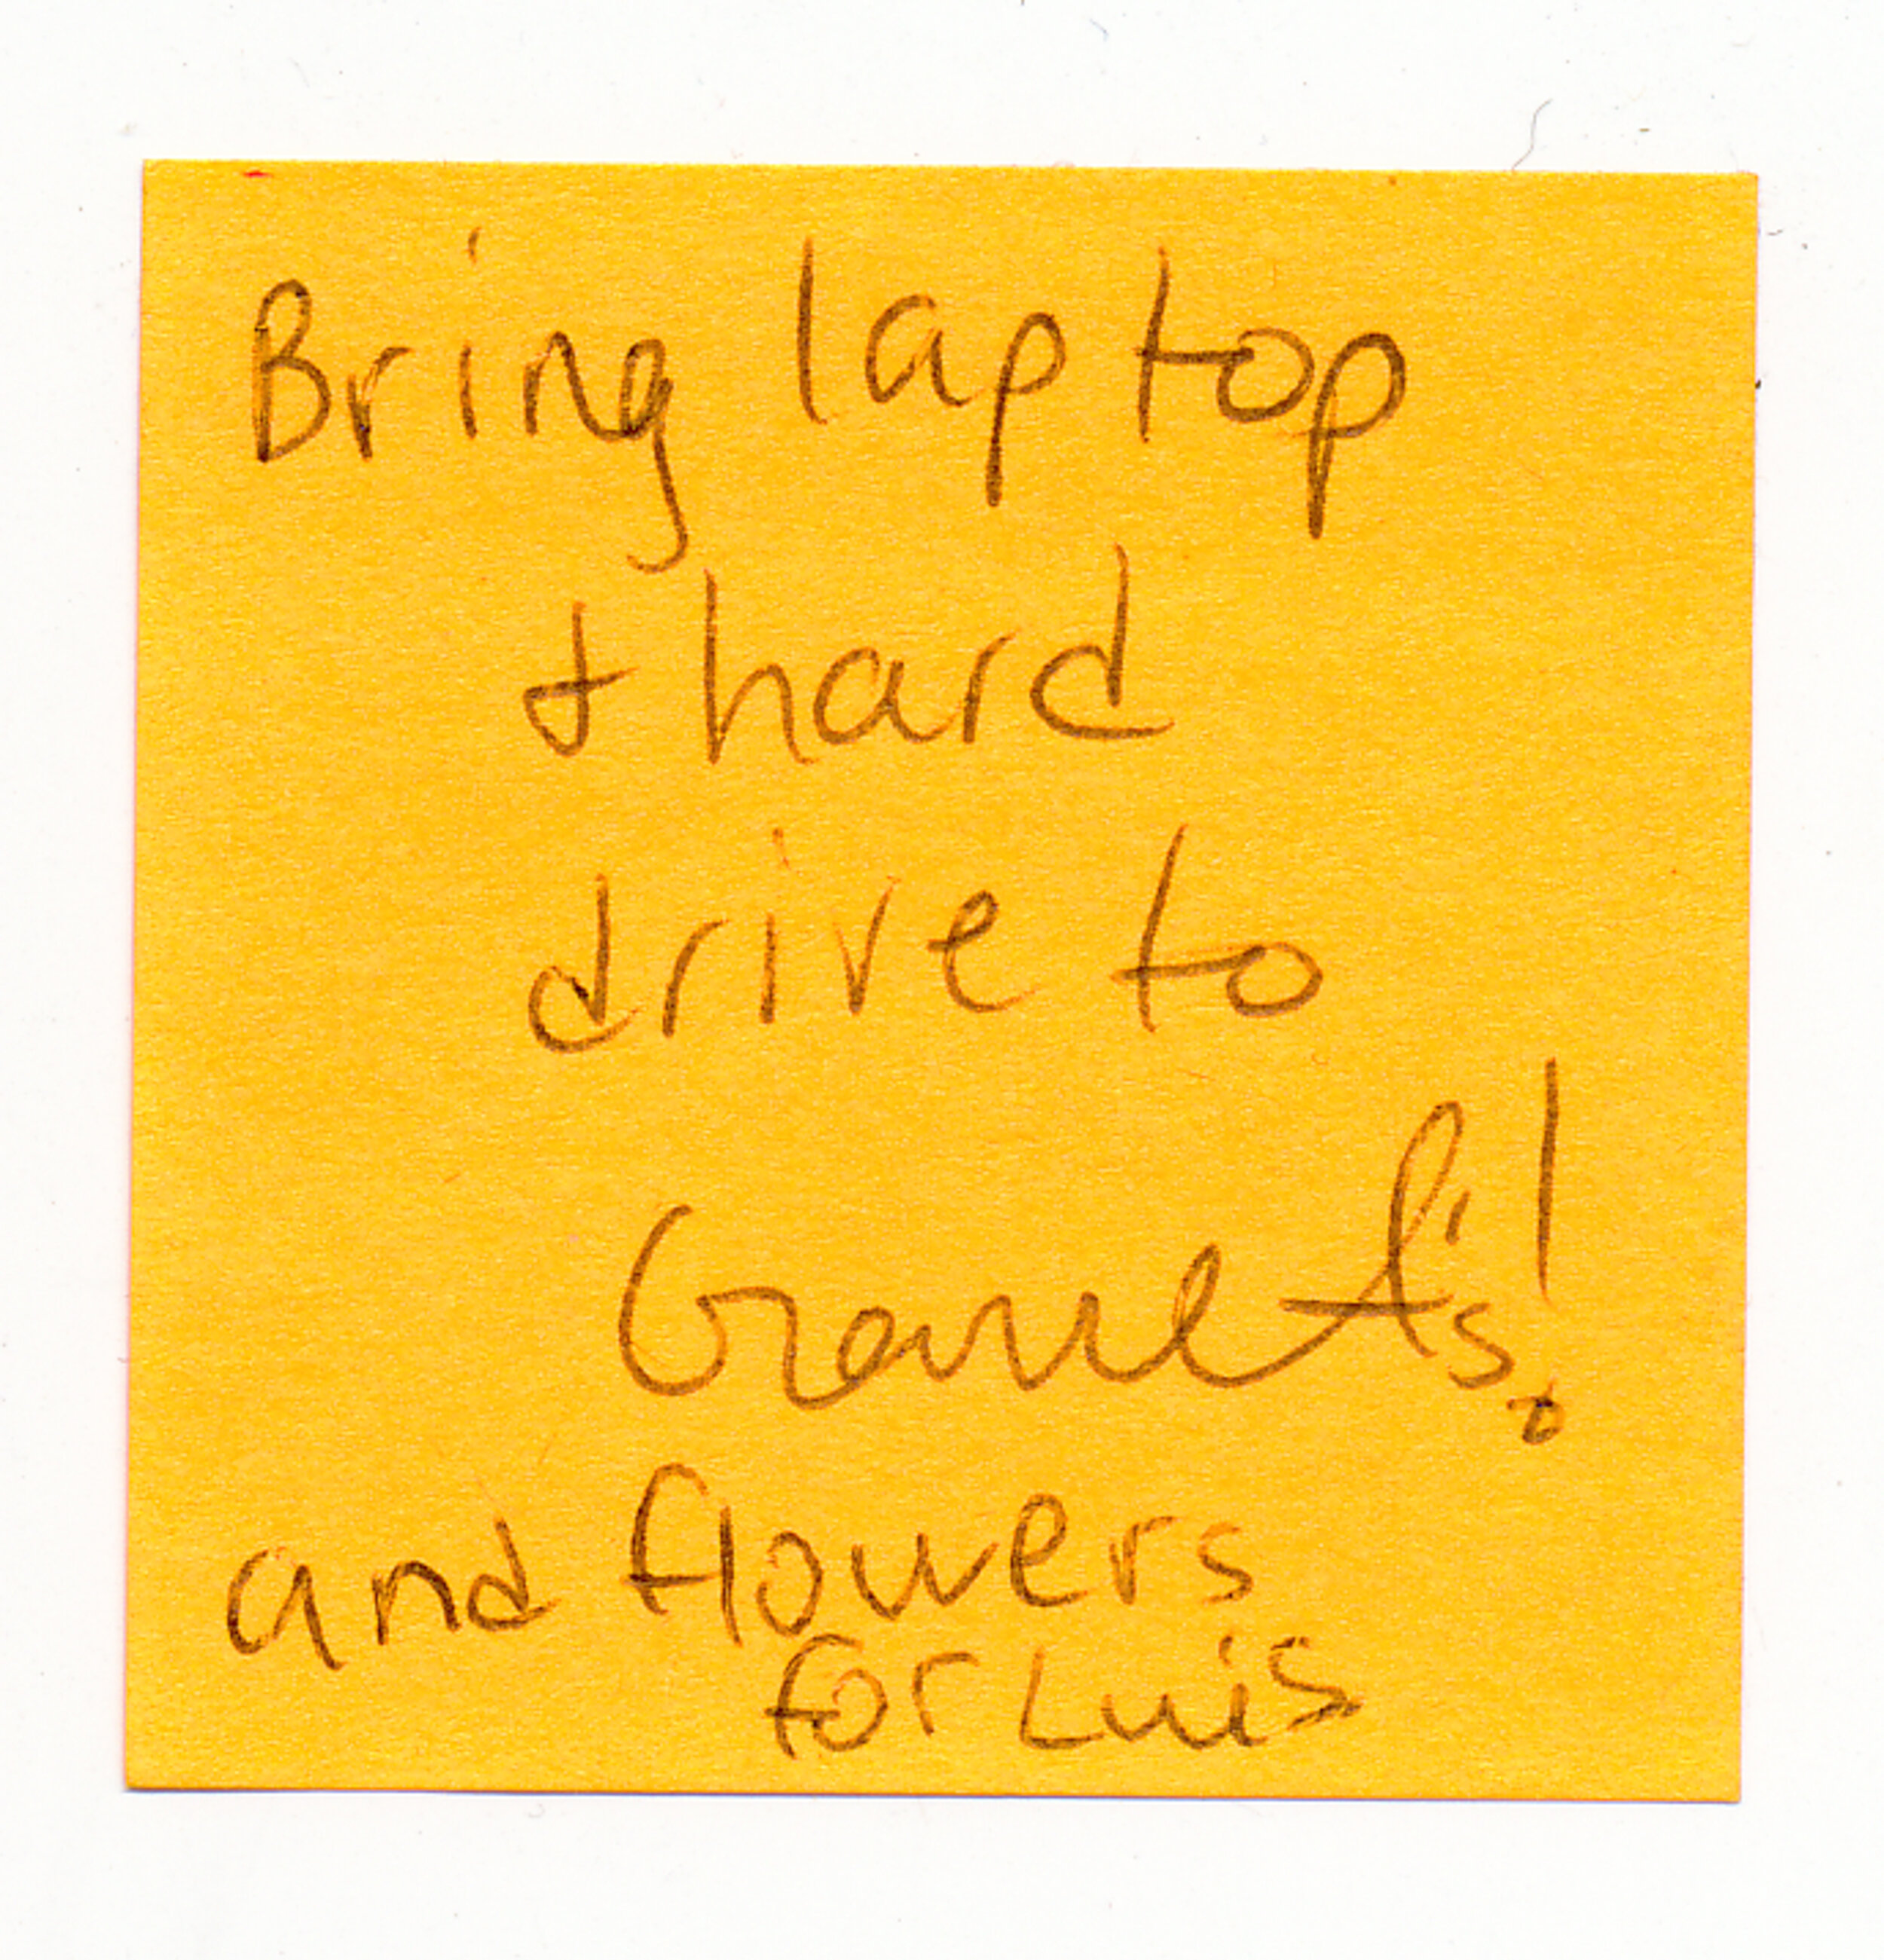 Bring laptop
+ hard
drive to
Garrett's!
and flowers
for Luis